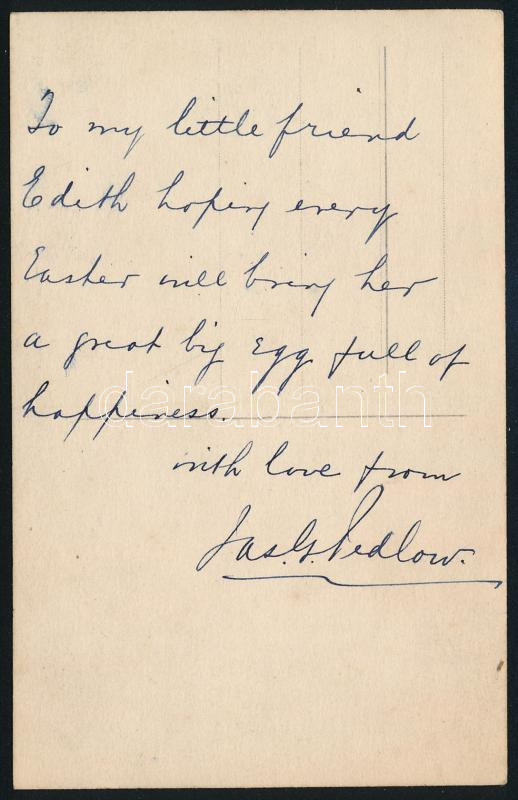 To my little friend
Edith hoping every
Easter will bring her
a great big egg full of
happiness.
darabanth
with love from
Jas. G. Pedlow.